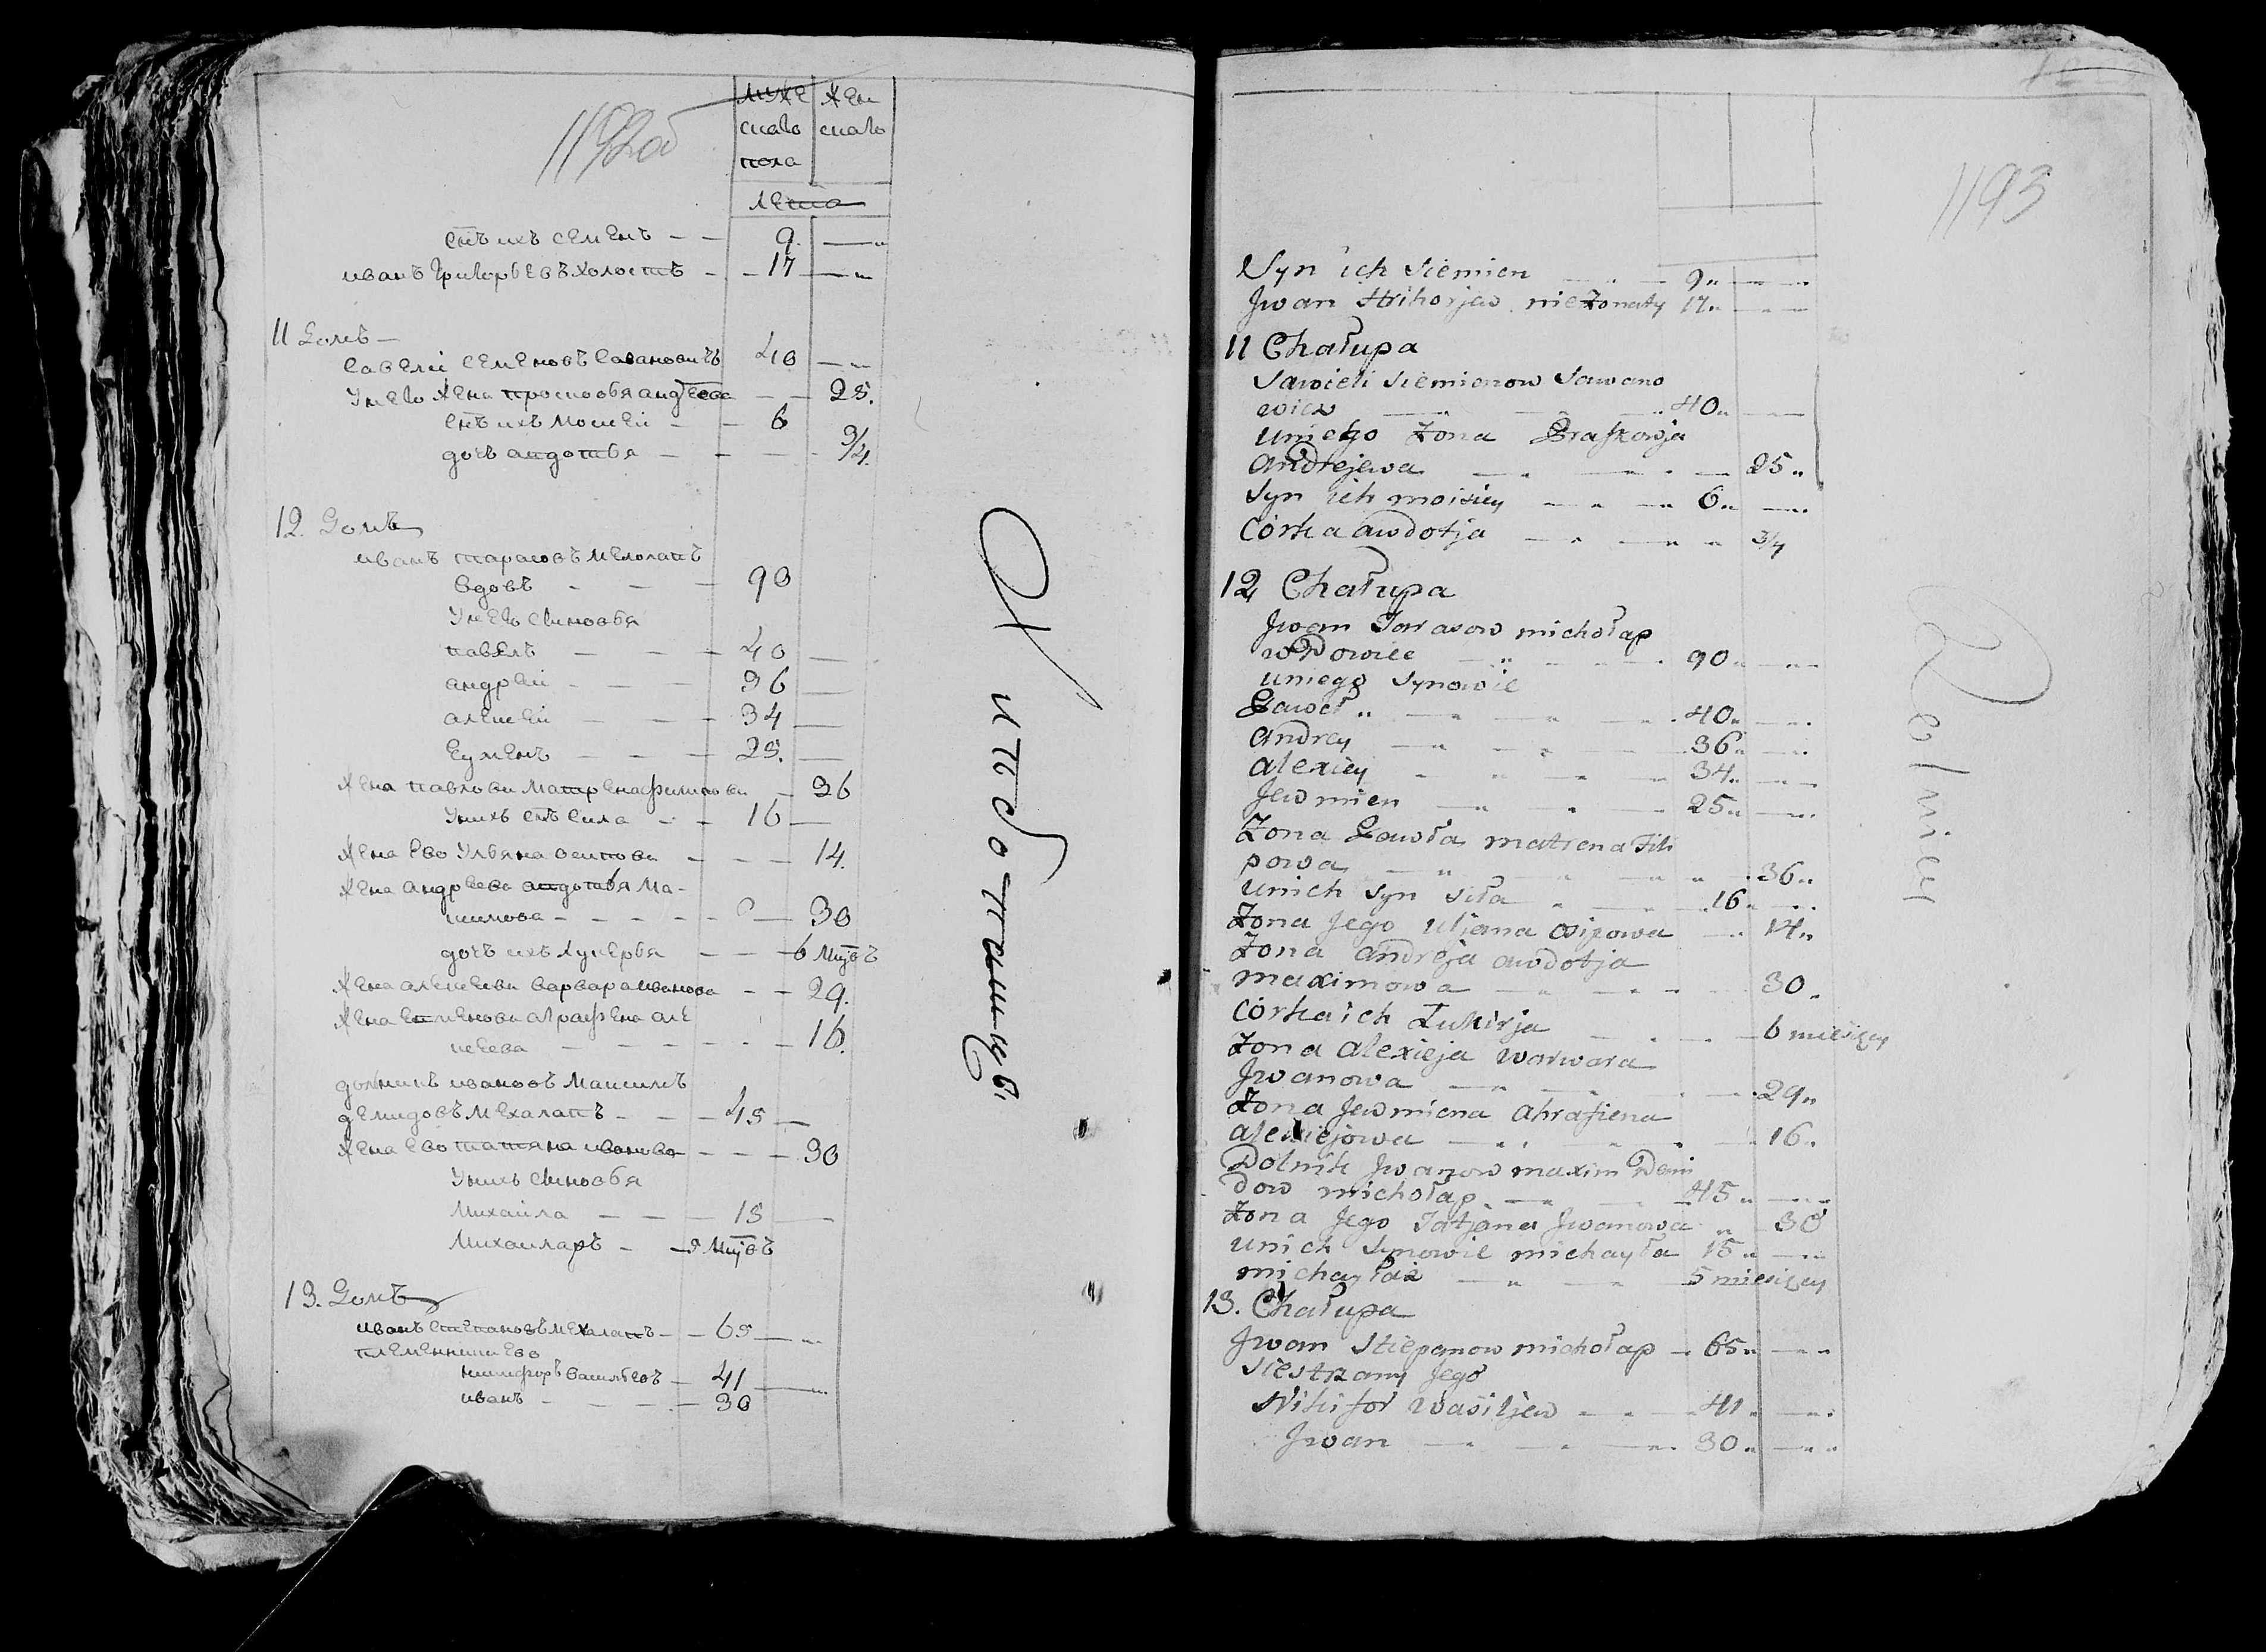 1192об
муже
жен
скаго
скаго
пола
лета
снъ ихъ семенъ — — 9. —"
иванъ григорьевъ холостъ - - 17 —"
11 Домъ —
савелй семеновъ савановичъ 40 —"
у него жена просковья андреева — — 25.
снъ ихъ мосией — — 6
дочь авдотья — — — 3/4.
12. Домъ
иванъ тарасовъ мехолапъ
вдовъ — — — 90
у него сыновья
павелъ — — — 40 —
андрей — — — 36 —
алексей — — — 34 —
евменъ — — — 25. —
жена павлова матрена филипова — 36
у нихъ снъ сила — — 16 —
жена ево ульяна осипова — — — 14.
жена андреева авдотья ма-
ксимова — — — — — 30
дочь ихъ лукерья — — — 6 мцовъ
жена алексеева варвара иванова — — 29.
жена евменова аграфена але
ксеева — — — — — — 16.
дольникъ ивановъ максимъ
демидовъ мехалапъ — — — 45 —
жена ево татьяна иванова — — — 30
у нихъ сыновья
михаила — — — 15 —
михаиларъ — — 5 мцовъ
13. Домъ
иванъ степановъ мехалапъ — — 65 —"
племенники ево
никифоръ васильевъ — 41 —"
иванъ — — — — 30
1193
Syn ich Siemien — " — 9" — — "
Jwan Hrihorjew nieżonaty 17" — — "
11 Chałupa
Sawieli Siemienow Sawano
wicz — " — 40" — —
uniego żona Praskowja
andrejewa — " — " — 25"
Syn ich moisiey — " — " 6" — "
Córka awdotja — " — " " 3/4
12 Chałupa
Jwan Tarasow michołap
wdowiec — " — " — . 90" — "
uniego Synowie
Paweł " — " — " — " . 40" — "
Andrey — " — " — 36" — "
alexiey — " — " — 34" — "
Jewmien — " — " — 25" — "
Żona Pawła matrena Fili
powa — " — " — " " . 36"
unich Syn Siła — " — " — 16" — "
Żona Jego Uljana osipowa — " 14"
Żona Andreja awdotja
maximowa — " — " — 30"
Córka ich Łukirja — " — " — 6 miesięcy
Żona alexieja warwara
Jwanowa — " — " — 29"
Żona Jewmiena Ahrafiena
alexiejowa — " . " — " — 16"
Dolnik Jwanow maxim Demi
dow michołap — " — " 45" — "
żona Jego Tatjana Jwanowa " — 30
unich Synowie michayła 15" — "
michayłar — " — 5 miesięcy
13. Chałupa
Jwan Stiepanow michołap — 65" — "
Siestrzany Jego
Nikifor Wasiljew — " — 41" — "
Jwan — " — " — 30" — "